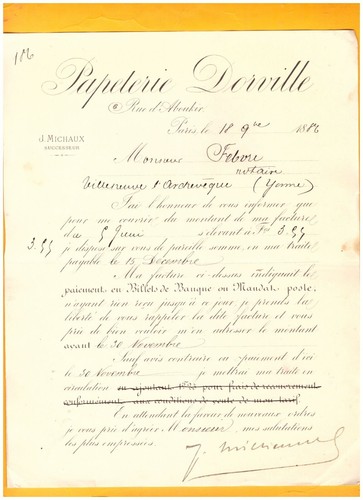 106
Papeterie Dorville
6 Rue d'Aboukir
Paris, le 18 9bre 1886
J. MICHAUX
SUCCESSEUR
Monsieur Febvre
notaire
Villeneuve l'Archevêque (Yonne)
J'ai l'honneur de vous informer que
pour me couvrir du montant de ma facture
du 5 Juin s'élevant à Frs 3.95
3.95 je dispose sur vous de pareille somme, en ma traite
payable le 15 Décembre
Ma facture ci-dessus indiquant le
paiement en Billets de Banque ou Mandat-poste,
n'ayant rien reçu jusqu'à ce jour je prends la
liberté de vous rappeler la dite facture et vous
prie de bien vouloir m'en adresser le montant
avant le 30 Novembre
Sauf avis contraire ou paiement d'ici
le 30 Novembre je mettrai ma traite en
circulation en ajoutant pour frais de recouvrement
conformément aux conditions de vente de mon tarif
En attendant la faveur de nouveaux ordres
je vous prie d'agréer Monsieur mes salutations
les plus empressées.
J. Michaux